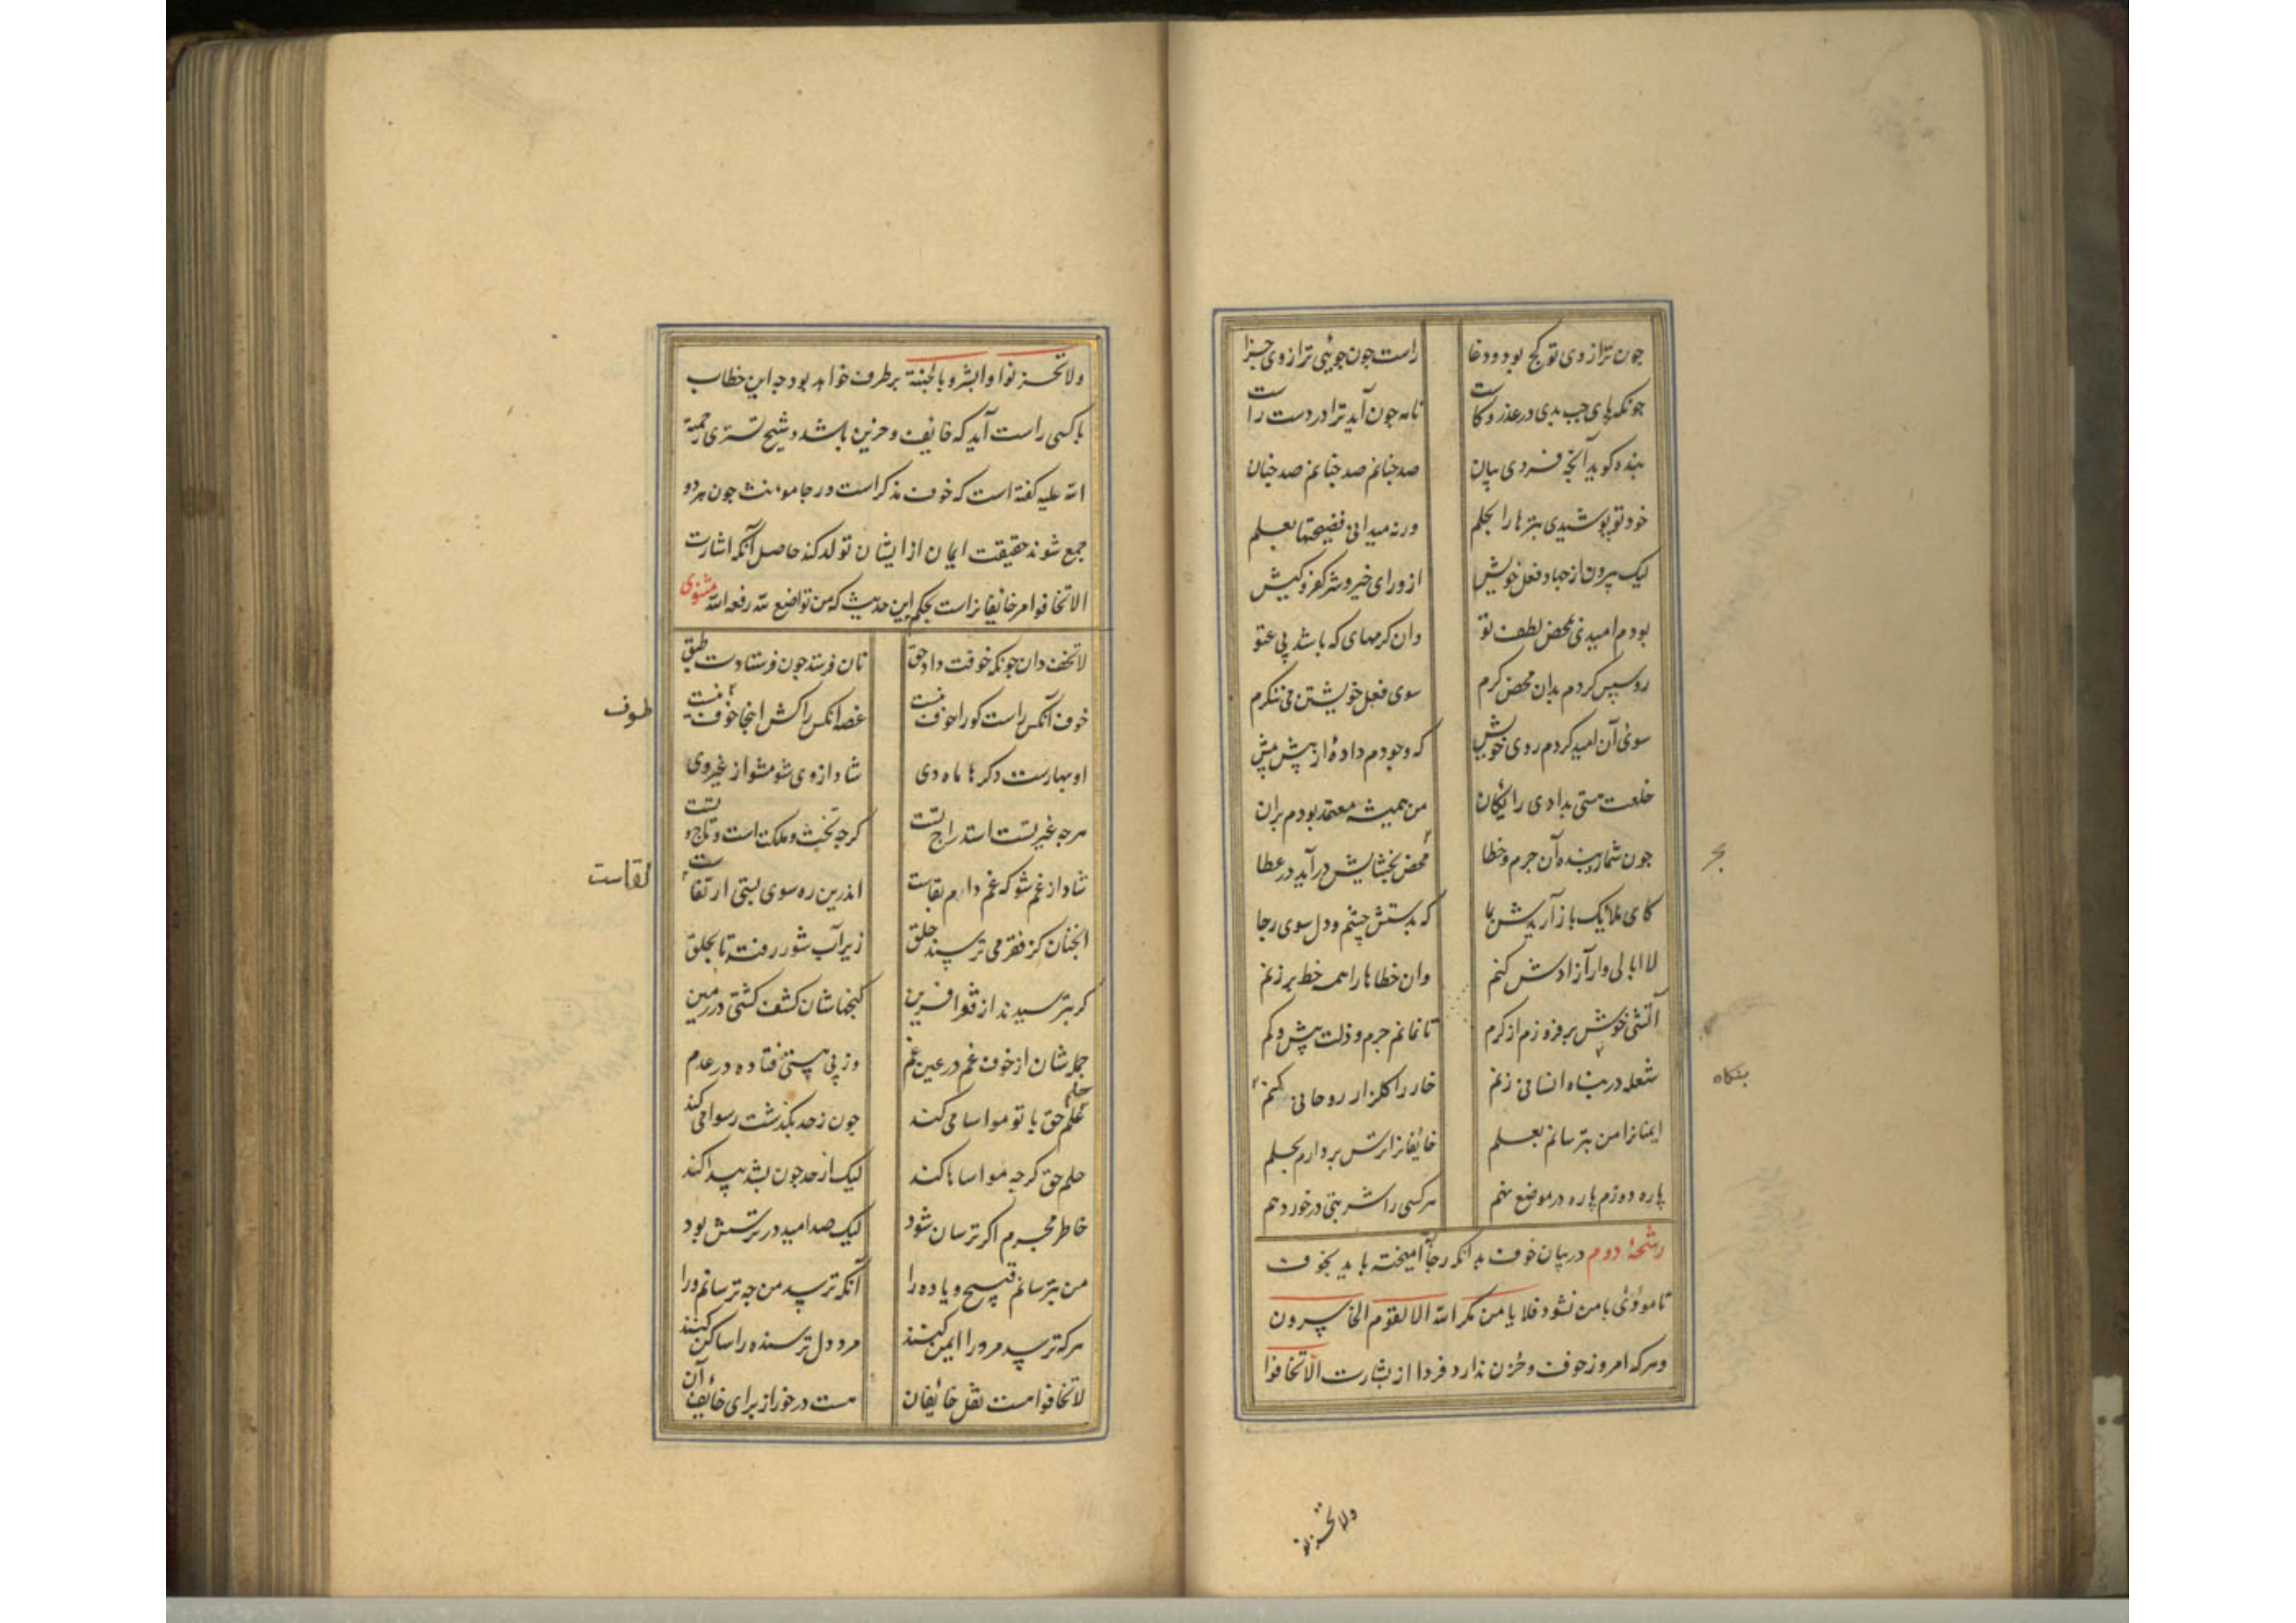 چون ترازوی تو کج بود و دغا راست چون جوئی ترازوی جزا
چونکه پای چپ بدی در عذر و کاست نامه چون آید ترا در دست راست
بنده کوید آنچه فرمودی بیان صد چنانم صد چنانم صد چنان
خود تو پوشیدی بترها را بحلم ورنه میدانی فضیحتها بعلم
لیک بیرون از جهاد و فعل خویش از ورای خیر و شر و کفر و کیش
بودم امیدی بمحض لطف تو وان کرمهای که باشد بی عتو
رو سپس کردم بدان محض کرم سوی فعل خویشتن می ننکرم
سوئ آن امید کردم روی خویش که وجودم دادهٔ از پیش بیش
خلعت هستی بدادی رایکان من همیشه معتمد بودم بران
چون شمارد بنده آن جرم و خطا محض بخشایش درآید در عطا
کای ملایک باز آریدش بما که بدستش چشم و دل سوی رجا
لاابالی وار آزادش کنم وان خطاها را همه خط بر زنم
آتشی خوش بر فروزم از کرم تا نمانم جرم و ذلت بیش و کم
شعله در بنکاه انسانی زنم خار را کلزار روحانی کنم
ایمنانرا من بترسانم بعلم خائفانرا ترس بردارم بحلم
پاره دوزم پاره در موضع نهم هر کسی را شربتی در خورد دهم
رشحهٔ دوم در بیان خوف بدانکه رجا آمیخته باید بخوف
تا مودّی بامن نشود فلا یامن مکر الله الا القوم الخاسرون
و هر که امروز خوف و حزن ندارد فردا از بشارت الّا تخافوا
ولا تحزنو
بنکاه
ولا تحزنوا وابشروا بالجنة بر طرف خواهد بود چه این خطاب
با کسی راست آید که خایف و حزین باشد و شیخ تستری رحمة
الله علیه کفته است که خوف مذکر است و رجا مونث چون هر دو
جمع شوند حقیقت ایمان از ایشان تولد کند حاصل آنکه اشارت
الا تخافوا مر خائفانراست بحکم این حدیث که من تواضع لله رفعه الله مثنوی
لا تخف دان چونکه خوفت داد حق نان فرستد چون فرستادت طبق
خوف آنکس راست کو را خوف نیست غصه آنکس را کش اینجا خوف نیست
طوف
او بهارست و دکرها ماه دی شاد از وی شو مشو از غیر وی
هرچه غیر تست استدراج تست کرچه تخت و ملکت است و تاج تست
شاد از غم شو که غم دام بقاست اندرین ره سوی پستی ارتقاست
لقاست
آنچنان کز فقر می ترسند خلق زیر آب شور رفته تا بحلق
کر بترسیدند از فقر آفرین کنجهاشان کشف کشتی در زمین
جمله شان از خوف غم در عین غم وز پی هستی فتاده در عدم
حلم حق با تو مواسا می کند چون ز حد بکذشت رسوا می کند
حلم حق کرچه مواساها کند لیک از حد چون بشد پیدا کند
خاطر مجرم اکر ترسان شود لیک صد امید در ترسش بود
من بترسانم قبیح و یاده را آنکه ترسید من چه ترسانم ورا
هر که ترسید مر ورا ایمن کنند مر دل ترسنده را ساکن کنند
لا تخافوا هست نقل خائفان هست در خور از برای خائف آن